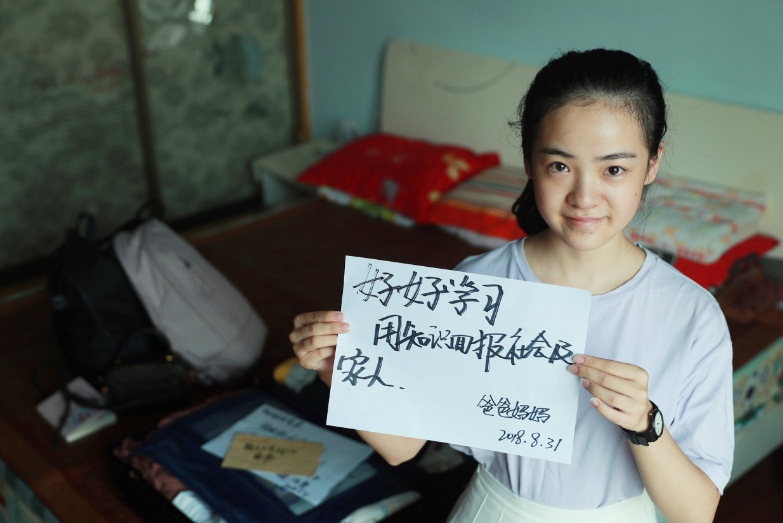 好好学习
用知识回报社会及
家人.
爸爸妈妈
2018.8.31